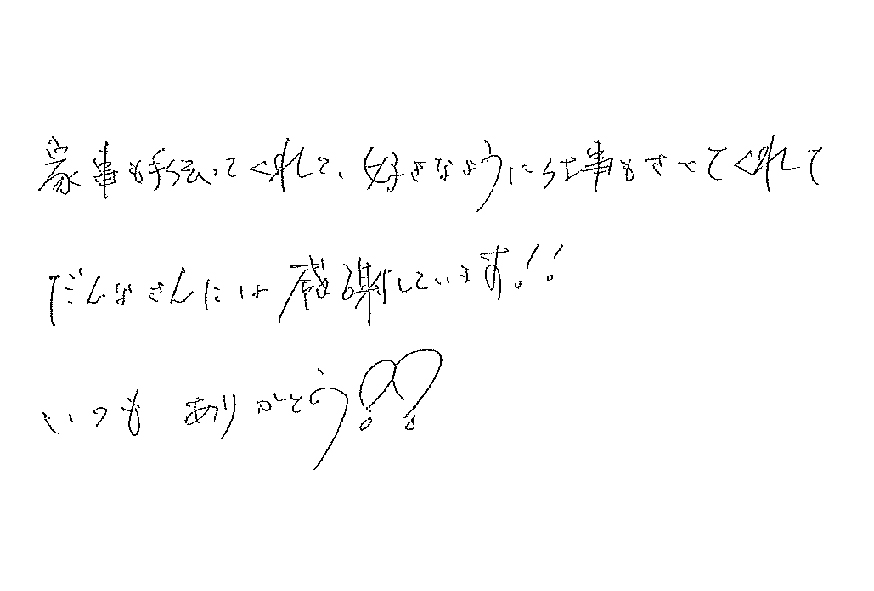 家事も手伝ってくれて、好きなように仕事もさせてくれて
だんなさんには感謝しています!!
いつも ありがとう!!